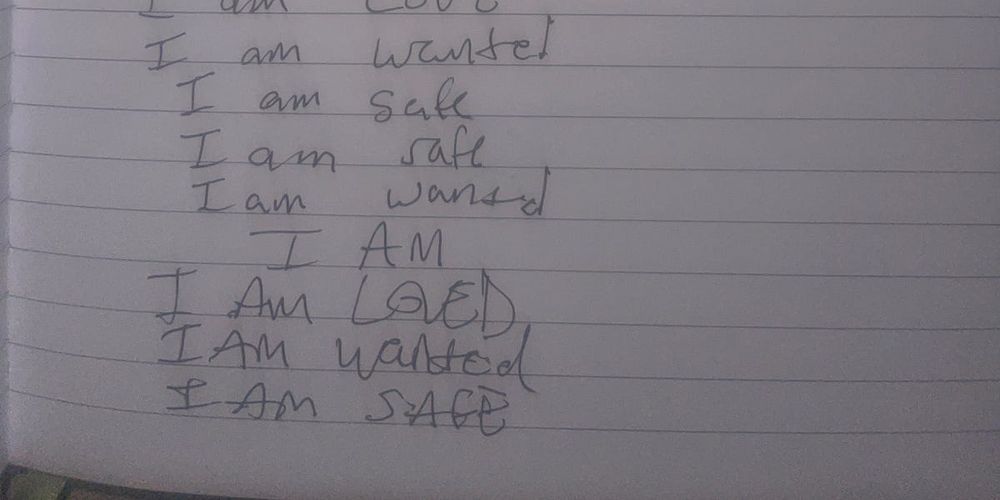 I am Love
I am wanted
I am safe
I am safe
I am wanted
I AM
I AM LOVED
I AM wanted
I AM SAFE